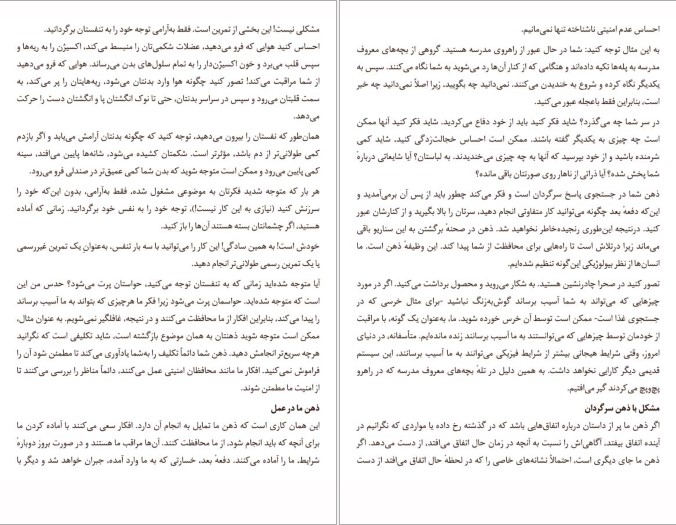 احساس عدم امنیتی ناشناخته تنها نمی‌مانیم.
به این مثال توجه کنید: شما در حال عبور از راهروی مدرسه هستید. گروهی از بچه‌های معروف
مدرسه به پله‌ها تکیه داده‌اند و هنگامی که از کنار آن‌ها رد می‌شوید به شما نگاه می‌کنند. سپس به
یکدیگر نگاه کرده و شروع به خندیدن می‌کنند. نمی‌دانید چه بگویید، زیرا اصلاً نمی‌دانید چه خبر
است، بنابراین فقط باعجله عبور می‌کنید.
در سر شما چه می‌گذرد؟ شاید فکر کنید باید از خود دفاع می‌کردید. شاید فکر کنید آنها ممکن
است چه چیزی به یکدیگر گفته باشند. ممکن است احساس خجالت‌زدگی کنید، شاید کمی
شرمنده باشید و از خود بپرسید که آنها به چه چیزی می‌خندیدند. به لباستان؟ آیا شایعاتی دربارهٔ
شما پخش شده؟ آیا ذراتی از ناهار روی صورتتان باقی مانده؟
ذهن شما در جستجوی پاسخ سرگردان است و فکر می‌کند چطور باید از پس آن برمی‌آمدید و
این‌که دفعهٔ بعد چگونه می‌توانید کار متفاوتی انجام دهید، سرتان را بالا بگیرید و از کنارشان عبور
کنید. درنتیجه این‌طوری رنجیده‌خاطر نخواهید شد. ذهن در صحنهٔ برگشتن به این سناریو باقی
می‌ماند زیرا درتلاش است تا راه‌هایی برای محافظت از شما پیدا کند. این وظیفهٔ ذهن است. ما
انسان‌ها از نظر بیولوژیکی این‌گونه تنظیم شده‌ایم.
تصور کنید در صحرا چادرنشین هستید. به شکار می‌روید و محصول برداشت می‌کنید. اگر در مورد
چیزهایی که می‌تواند به شما آسیب برساند گوش‌به‌زنگ نباشید -برای مثال خرسی که در
جستجوی غذا است- ممکن است توسط آن خرس خورده شوید. ما، به‌عنوان یک گونه، با مراقبت
از خودمان توسط چیزهایی که می‌توانستند به ما آسیب برسانند زنده مانده‌ایم. متأسفانه، در دنیای
امروز، وقتی شرایط هیجانی بیشتر از شرایط فیزیکی می‌توانند به ما آسیب برسانند، این سیستم
قدیمی دیگر کارایی نخواهد داشت. به همین دلیل در تلهٔ بچه‌های معروف مدرسه که در راهرو
پچ‌پچ می‌کردند گیر می‌افتیم.
مشکل با ذهن سرگردان
اگر ذهن ما پر از داستان درباره اتفاق‌هایی باشد که در گذشته رخ داده یا مواردی که نگرانیم در
آینده اتفاق بیفتد، آگاهی‌اش را نسبت به آنچه در زمان حال اتفاق می‌افتد، از دست می‌دهد. اگر
ذهن ما جای دیگری است، احتمالاً نشانه‌های خاصی را که در لحظهٔ حال اتفاق می‌افتد از دست
مشکلی نیست! این بخشی از تمرین است. فقط به‌آرامی توجه خود را به تنفستان برگردانید.
احساس کنید هوایی که فرو می‌دهید، عضلات شکمی‌تان را منبسط می‌کند، اکسیژن را به ریه‌ها و
سپس قلب می‌برد و خون اکسیژن‌دار را به تمام سلول‌های بدن می‌رساند. هوایی که فرو می‌دهید
از شما مراقبت می‌کند! تصور کنید چگونه هوا وارد بدنتان می‌شود، ریه‌هایتان را پر می‌کند، به
سمت قلبتان می‌رود و سپس در سراسر بدنتان، حتی تا نوک انگشتان پا و انگشتان دست را حرکت
می‌دهد.
همان‌طور که نفستان را بیرون می‌دهید، توجه کنید که چگونه بدنتان آرامش می‌یابد و اگر بازدم
کمی طولانی‌تر از دم باشد، مؤثرتر است. شکمتان کشیده می‌شود، شانه‌ها پایین می‌افتد، سینه
کمی پایین می‌رود و ممکن است متوجه شوید که بدن شما کمی عمیق‌تر در صندلی فرو می‌رود.
هر بار که متوجه شدید فکرتان به موضوعی مشغول شده، فقط به‌آرامی، بدون این‌که خود را
سرزنش کنید (نیازی به این کار نیست!)، توجه خود را به نفس خود برگردانید. زمانی که آماده
هستید، اگر چشمانتان بسته هستند آن‌ها را باز کنید.
خودش است! به همین سادگی! این کار را می‌توانید با سه بار تنفس، به‌عنوانِ یک تمرین غیررسمی
یا یک تمرین رسمی طولانی‌تر انجام دهید.
آیا متوجه شده‌اید زمانی که به تنفستان توجه می‌کنید، حواستان پرت می‌شود؟ حدس من این
است که متوجه شده‌اید. حواسمان پرت می‌شود زیرا فکر ما هرچیزی که بتواند به ما آسیب برساند
را پیدا می‌کند، بنابراین افکار از ما محافظت می‌کنند و در نتیجه، غافلگیر نمی‌شویم. به عنوان مثال،
ممکن است متوجه شوید ذهنتان به همان موضوع بازگشته است، شاید تکلیفی است که نگرانید
هرچه سریع‌تر انجامش دهید. ذهن شما دائماً تکلیف را به‌شما یادآوری می‌کند تا مطمئن شود آن را
فراموش نمی‌کنید. افکار ما مانند محافظان امنیتی عمل می‌کنند، دائماً مناظر را بررسی می‌کنند تا
از امنیت ما مطمئن شوند.
ذهن ما در عمل
این همان کاری است که ذهن ما تمایل به انجام آن دارد. افکار سعی می‌کنند با آماده کردن ما
برای آنچه که باید انجام شود، از ما محافظت کنند. آن‌ها مراقب ما هستند و در صورت بروز دوبارهٔ
شرایط، ما را آماده می‌کنند. دفعهٔ بعد، خسارتی که به ما وارد آمده، جبران خواهد شد و دیگر با